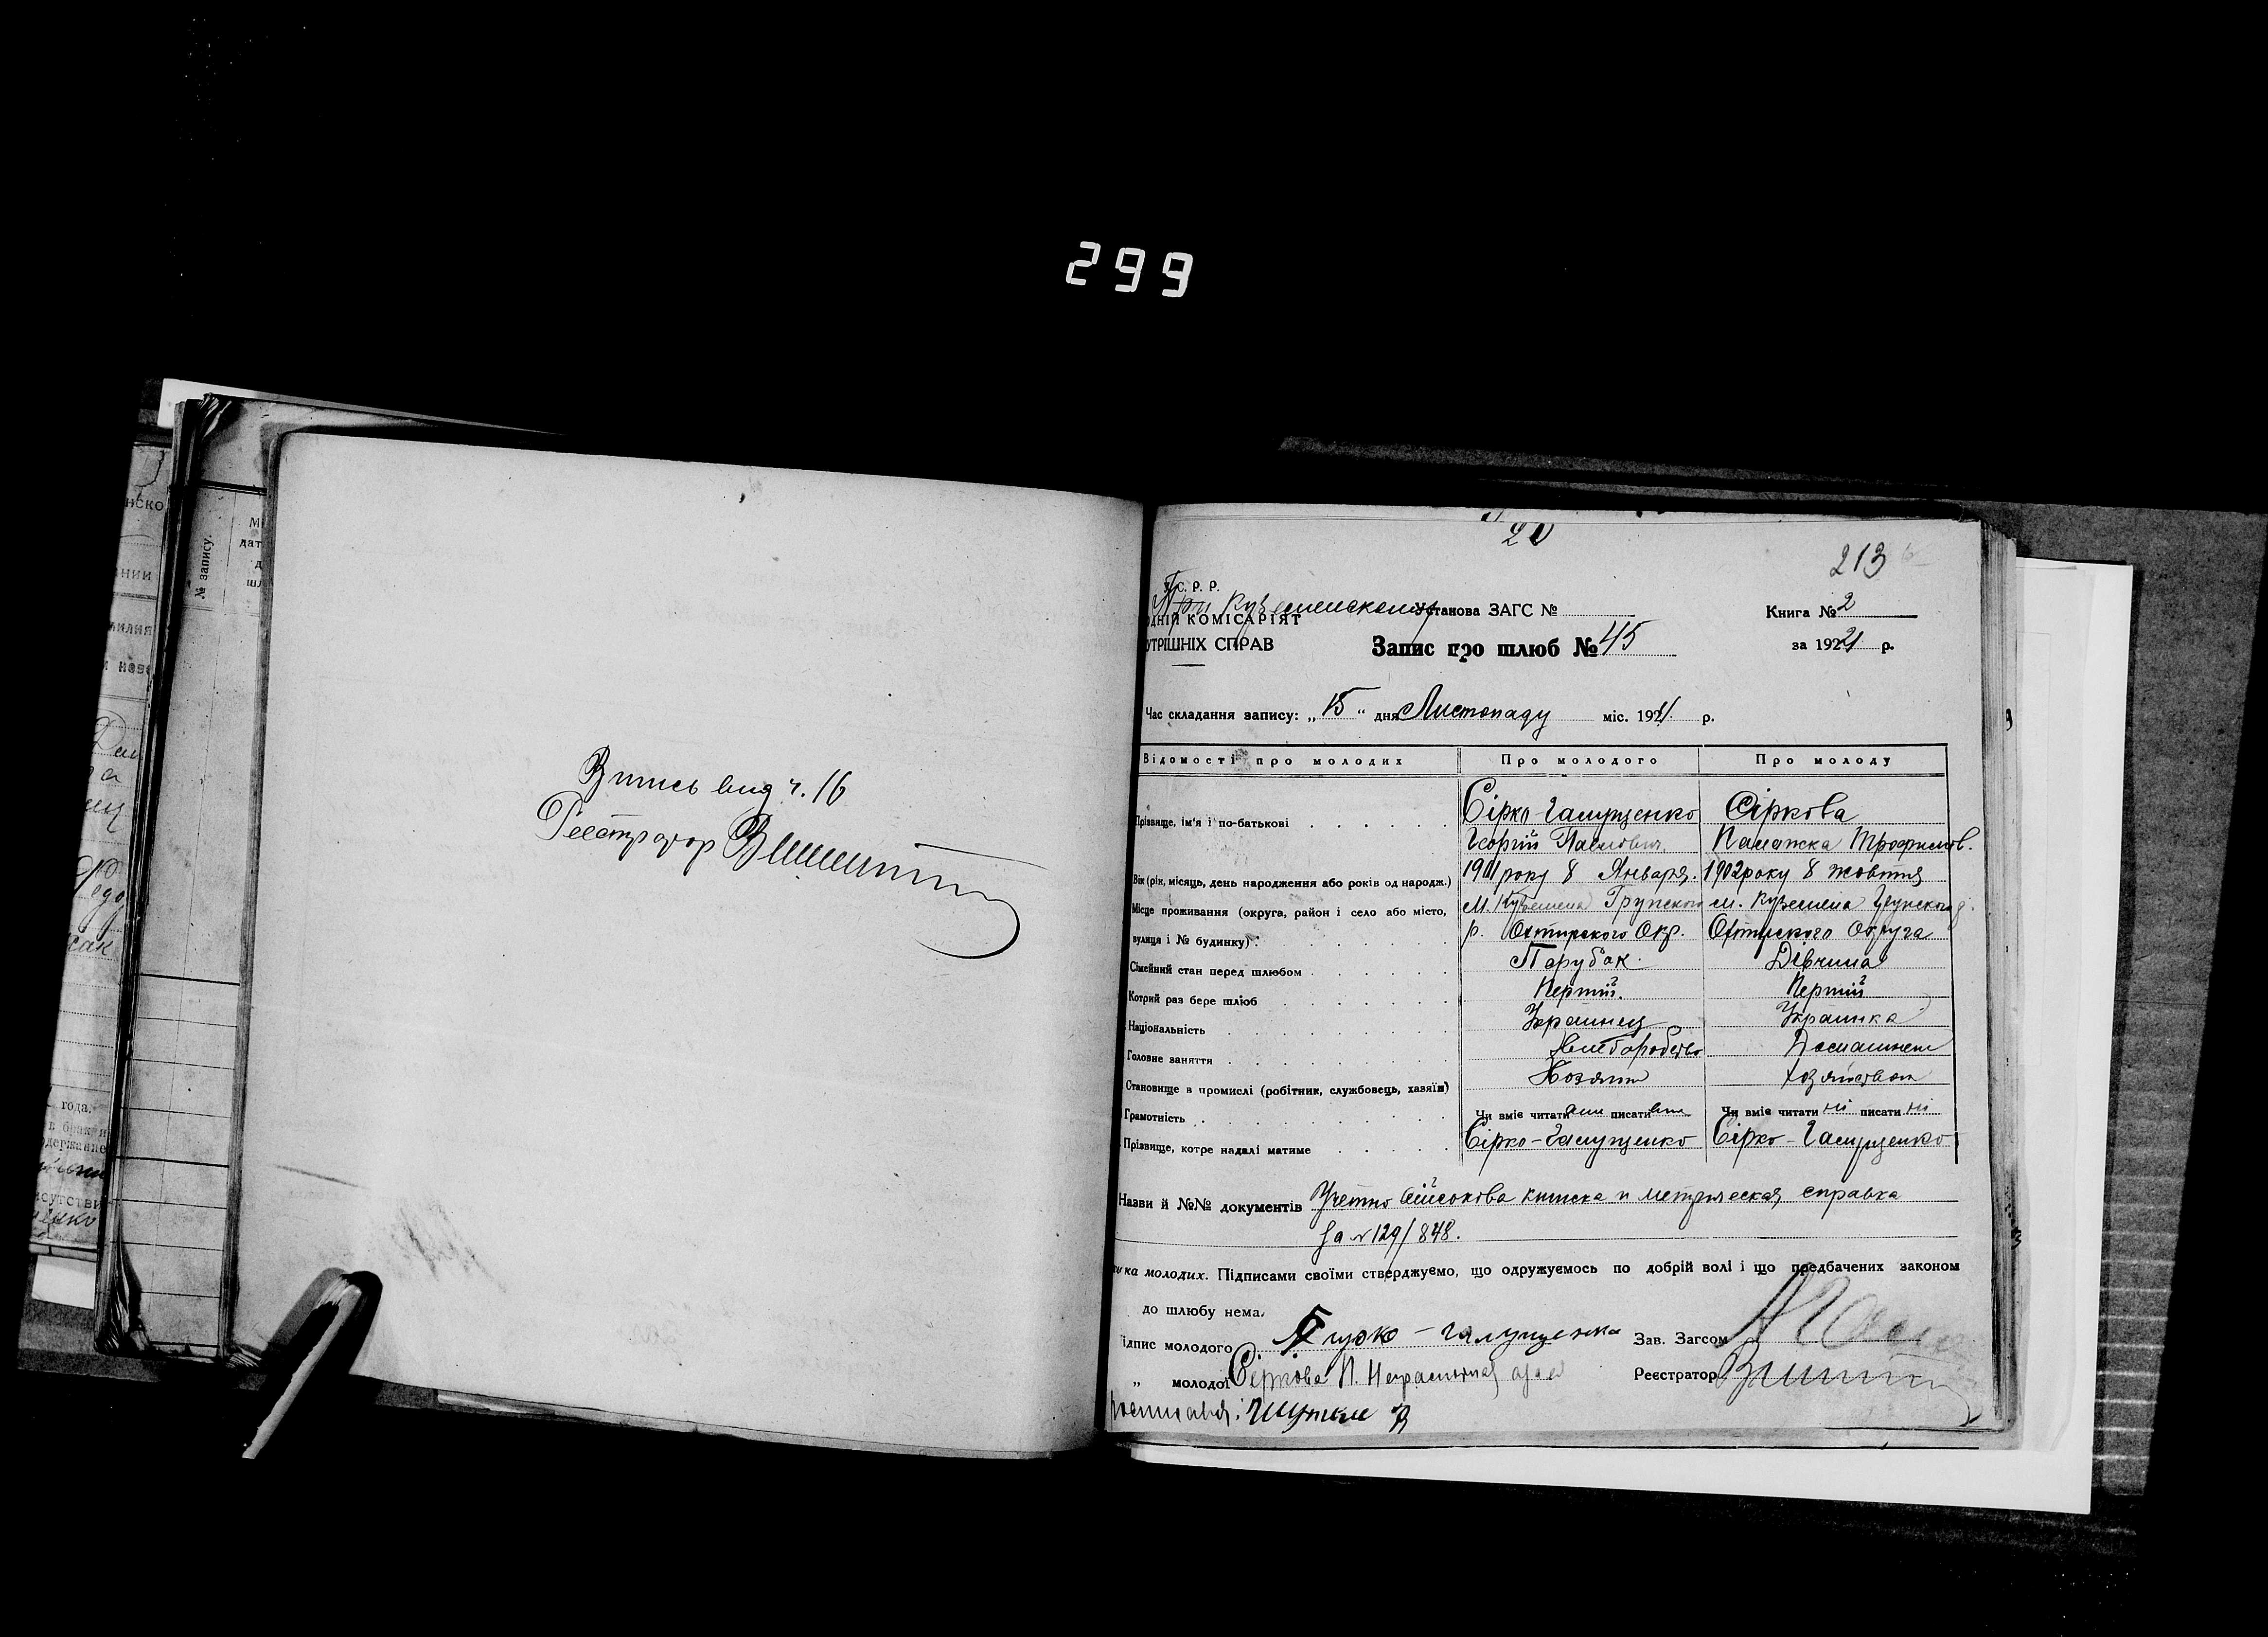 299
Випись вид ч. 16
Реєстратор
№ запису.
года.
20
213
С. Р. Р.
При Куземенскому Установа ЗАГС №
Книга № 2
ОДНІЙ КОМІСАРІЯТ
УТРІШНІХ СПРАВ
Запис про шлюб № 45
за 1924 р.
Час складання запису: „ 15 “ дня Листопаду міс. 1924 р.
Відомості про молодих Про молодого Про молоду
Прізвище, ім'я і по-батькові Сірко-Галущенко Сіркова
Георгій Павлович Палажка Трофимов.
Вік (рік, місяць, день народження або років од народж.) 1901 року 8 Января. 1902 року 8 жовтня
Місце проживання (округа, район і село або місто, м. Куземена Грунского м. Куземена Грунского
вулиця і № будинку) р. Охтирского Окр. Охтирского Округа
Сімейний стан перед шлюбом Парубок Дівчина
Котрий раз бере шлюб Перший. Перший
Національність Украинец Украинка
Головне заняття Хлеборобство Домашнем
Становище в промислі (робітник, службовець, хазяїн) Хозяин хозяйством
Грамотність Чи вміє читати писати Чи вміє читати ні писати ні
Прізвище, котре надалі матиме Сірко-Галущенко Сірко-Галущенко
Назви й №№ документів Учетно військова книжка и метрическая справка
за № 129/848.
ка молодих. Підписами своїми стверджуємо, що одружуємось по добрій волі і що предбачених законом
до шлюбу нема.
ідпис молодого Сирко-Галущенко Зав. Загсом
„ молодої Сіркова П. Неграмотная а за её
Реєстратор